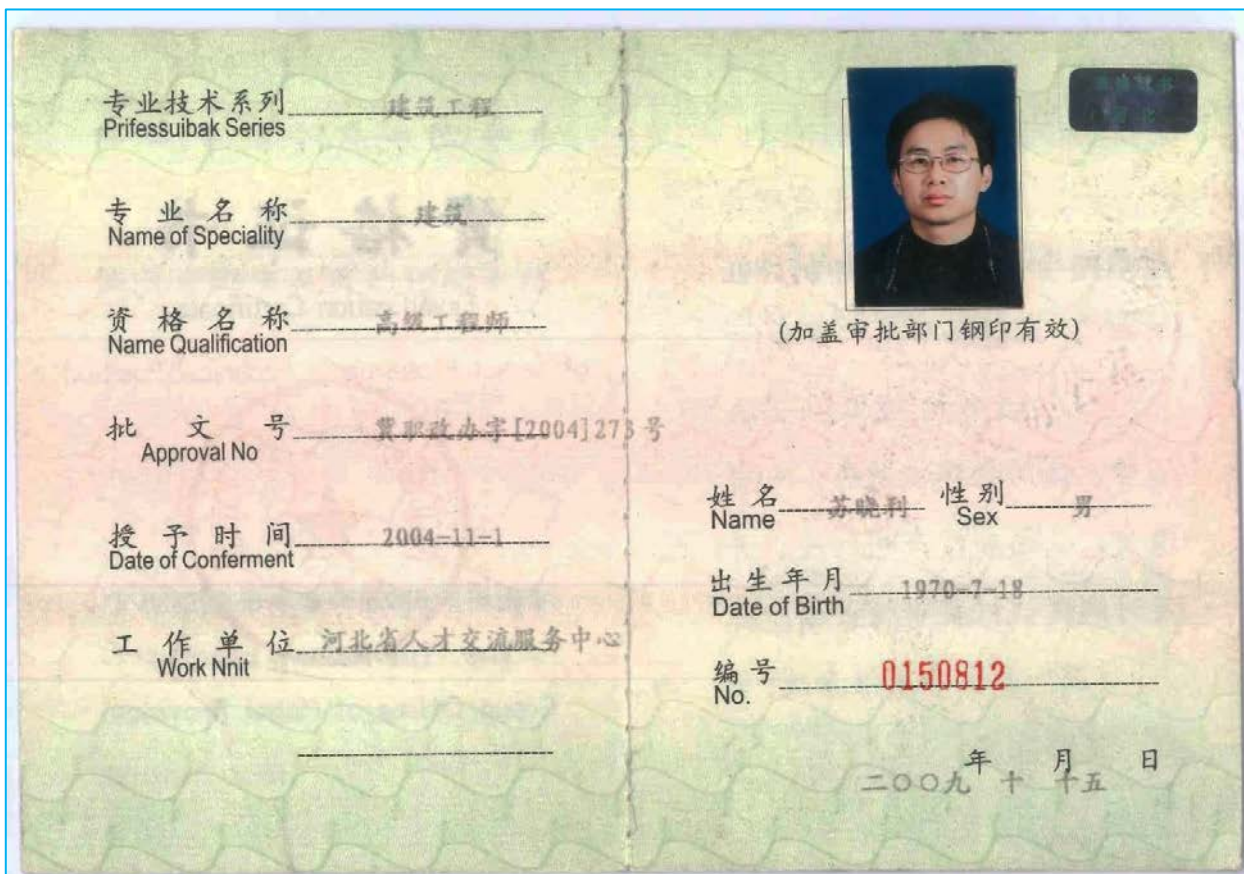 专业技术系列 建筑工程
Prifessuibak Series
专业名称 建筑
Name of Speciality
资格名称 高级工程师
Name Qualification
批文号 冀职改办字[2004]273号
Approval No
授予时间 2004-11-1
Date of Conferment
工作单位 河北省人才交流服务中心
Work Nnit
(加盖审批部门钢印有效)
姓名 苏晓利 性别 男
Name Sex
出生年月 1970-7-18
Date of Birth
编号 0150812
No.
年 月 日
二〇〇九 十 十五